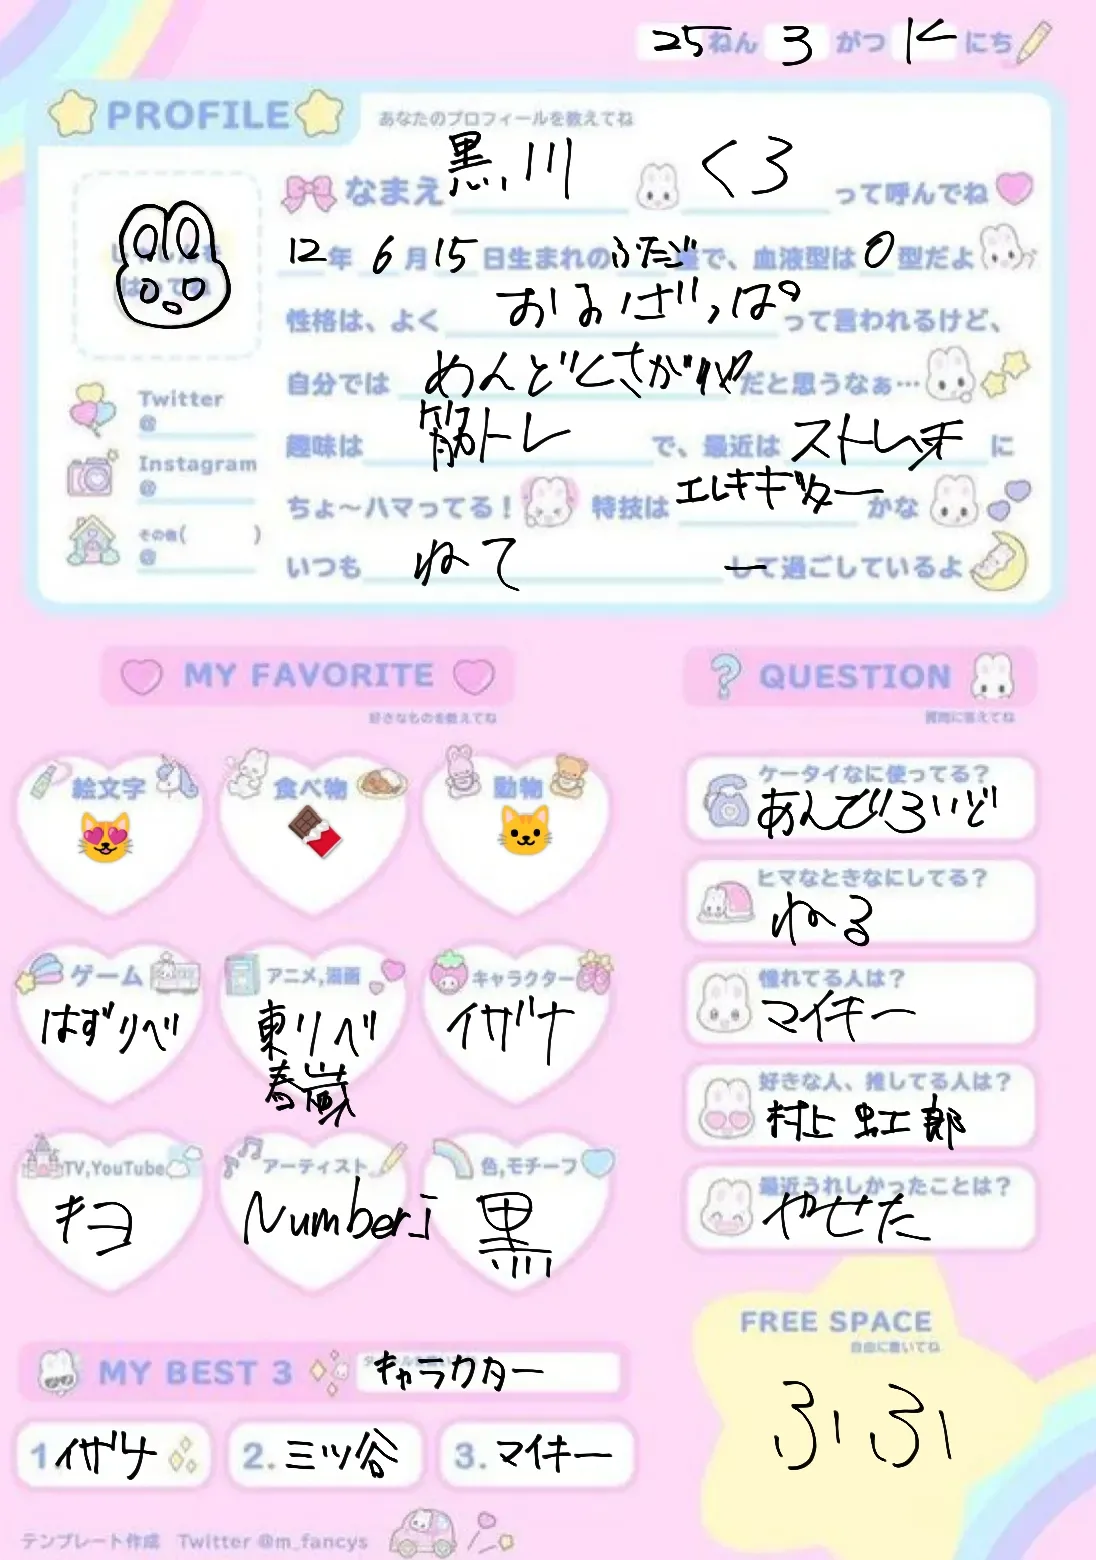 25ねん 3 がつ 14 にち
PROFILE
あなたのプロフィールを教えてね
なまえ 黒川 くろ って呼んでね
12年 6月15日生まれのふたご座で、血液型はO型だよ
性格は、よく おおざっぱ って言われるけど、
自分では めんどくさがりや だと思うなぁ…
Twitter
@
趣味は 筋トレ で、最近は ストレッチ に
Instagram
@
ちょ～ハマってる! 特技は エレキギター かな
その他( )
@
いつも ねて して過ごしているよ
MY FAVORITE
好きなものを教えてね
QUESTION
質問に答えてね
絵文字 食べ物 動物
😻 🍫 🐱
ケータイなに使ってる?
あんどろいど
ヒマなときなにしてる?
ねる
ゲーム アニメ,漫画 キャラクター
はずリべ 東リベ イザナ
春嵐
憧れてる人は?
マイキー
好きな人、推してる人は?
村上 虹郎
TV,YouTube アーティスト 色,モチーフ
キヨ Number_i 黒
最近うれしかったことは?
やせた
MY BEST 3 キャラクター
1 イザナ 2. 三ツ谷 3. マイキー
FREE SPACE
自由に書いてね
ふふ
テンプレート作成 Twitter @m_fancys